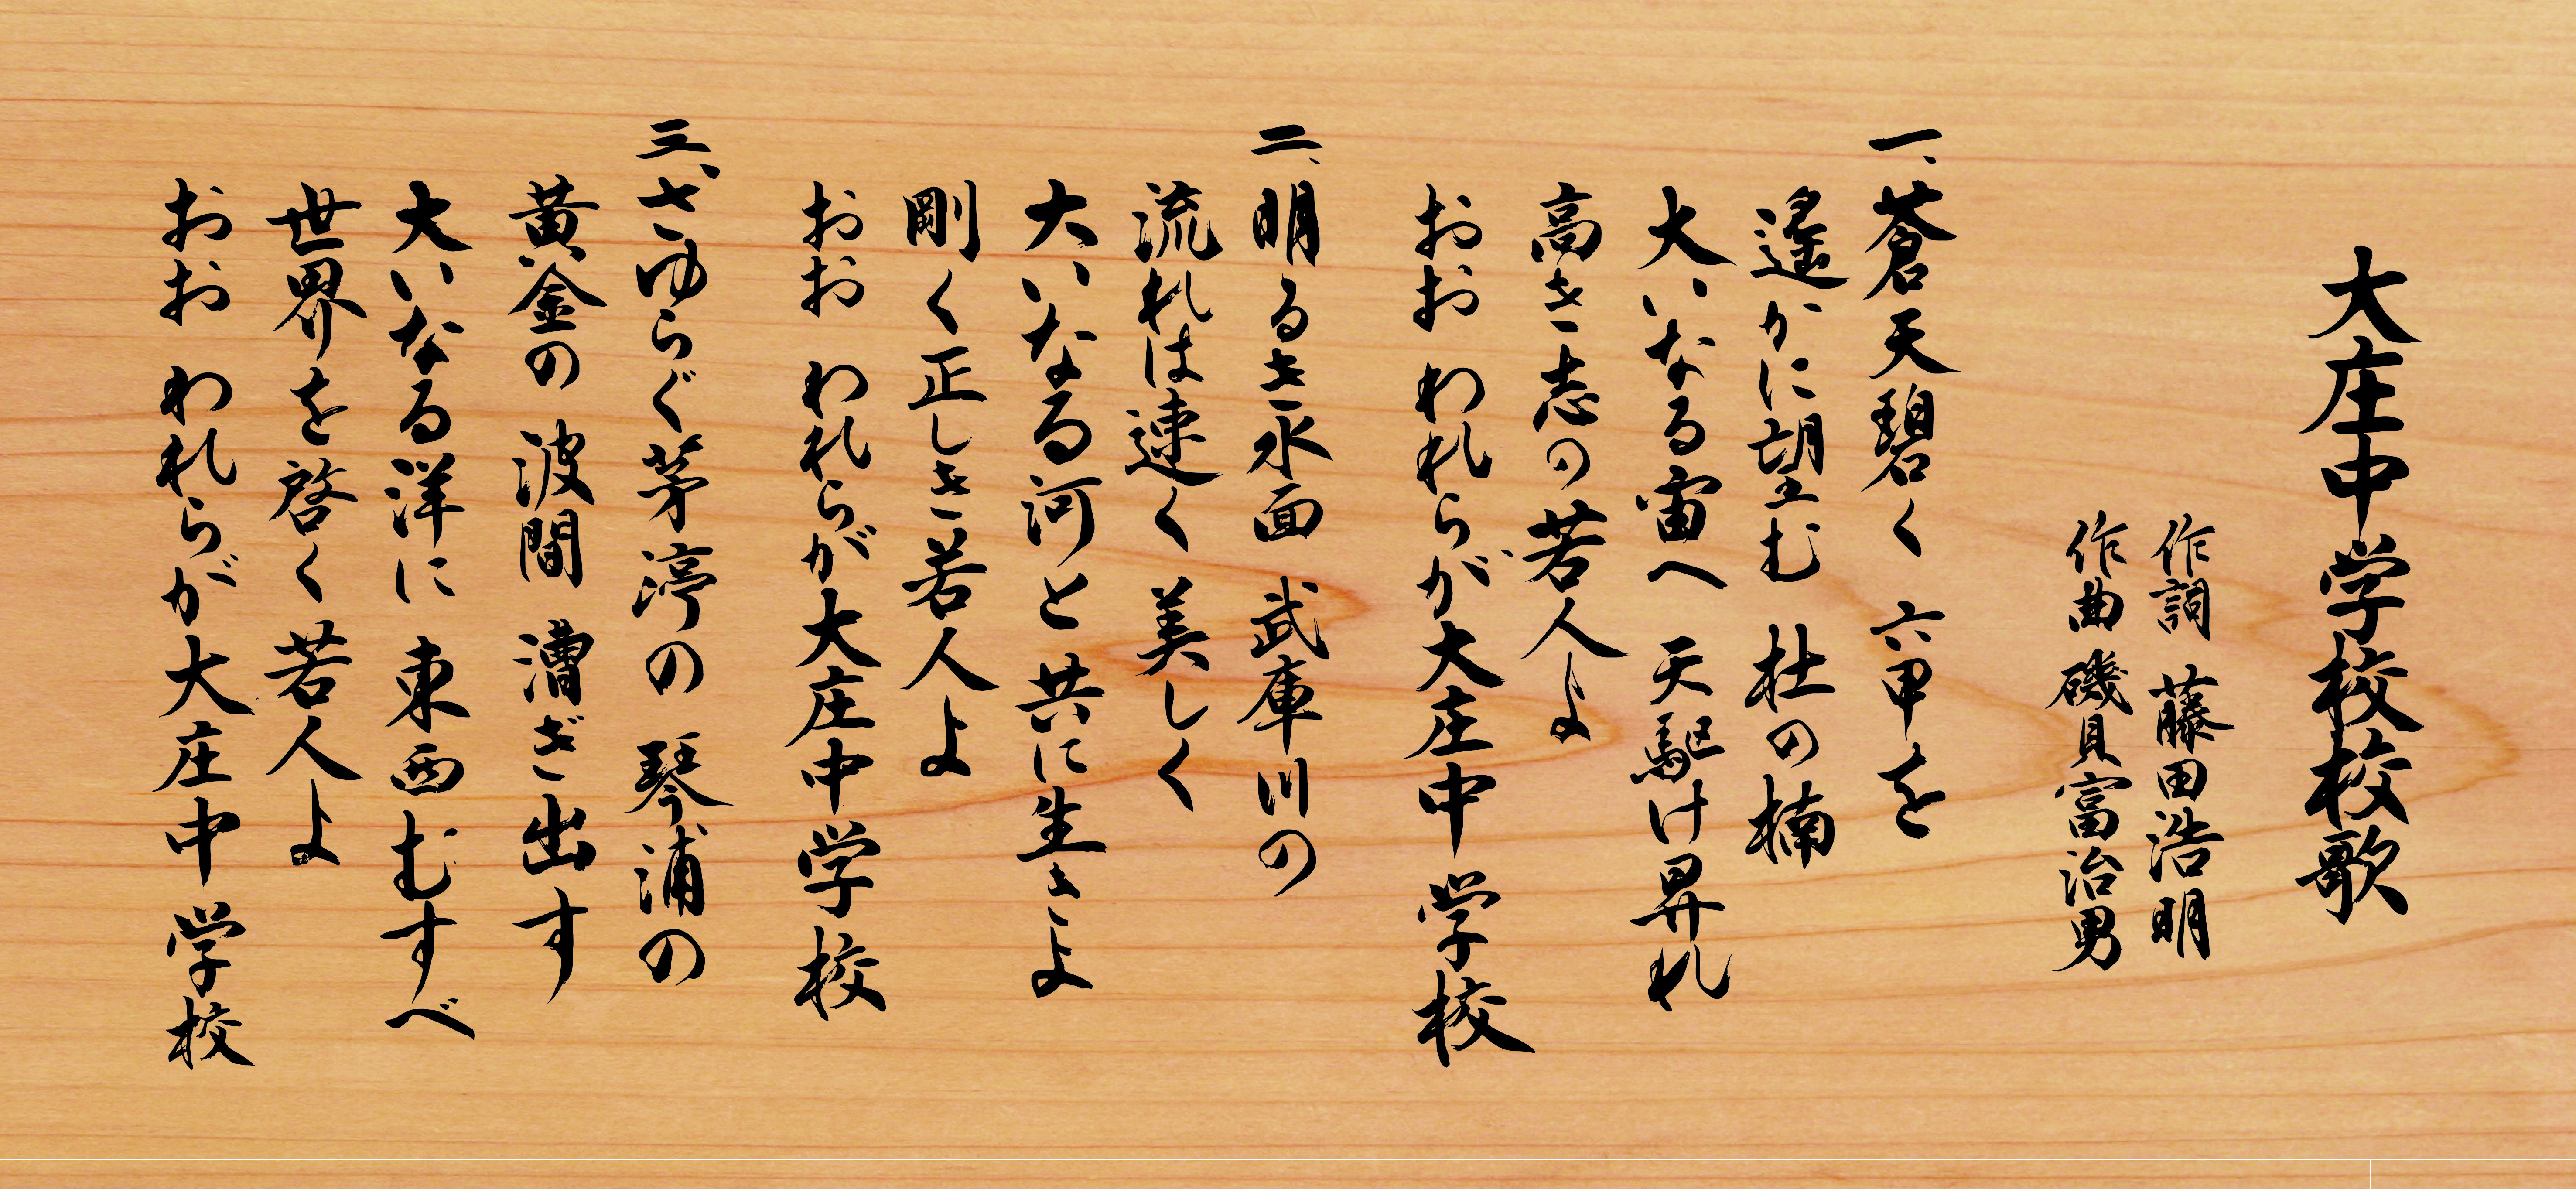 大庄中学校校歌
作詞 藤田浩明
作曲 磯貝富治男
一、蒼天碧く 六甲を
遙かに望む 杜の楠
大いなる宙へ 天駆け昇れ
高き志の若人よ
おお われらが大庄中学校
二、明るき水面 武庫川の
流れは速く 美しく
大いなる河と 共に生きよ
剛く正しき若人よ
おお われらが大庄中学校
三、さゆらぐ茅渟の 琴浦の
黄金の 波間 漕ぎ出す
大いなる洋に 東西むすべ
世界を啓く若人よ
おお われらが大庄中学校